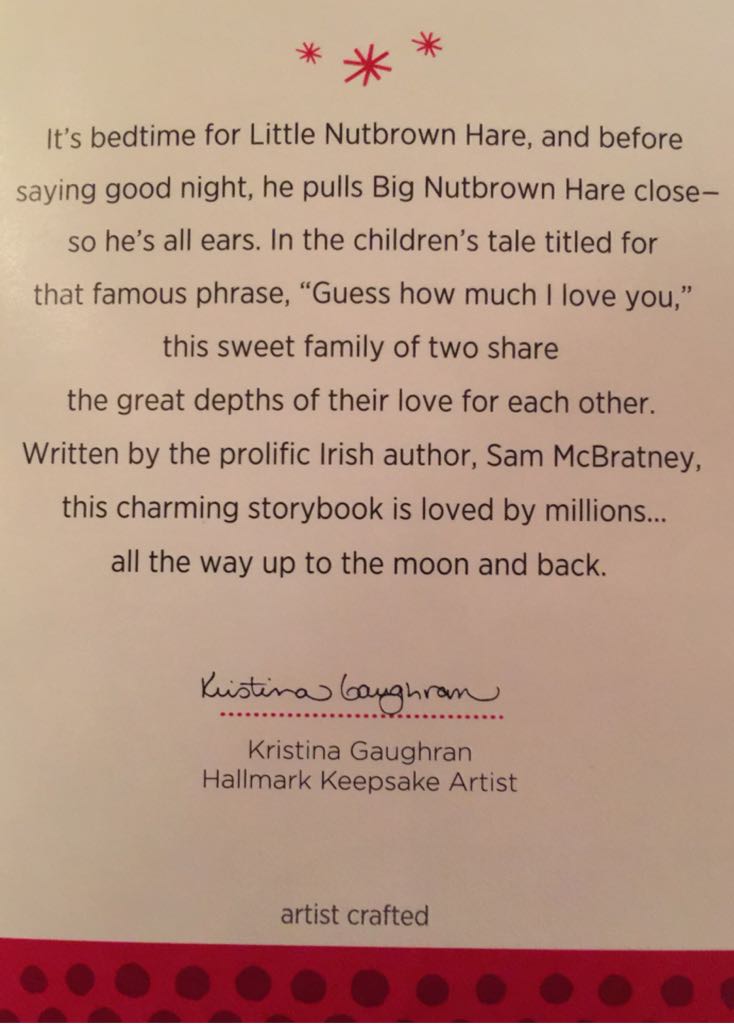 It's bedtime for Little Nutbrown Hare, and before
saying good night, he pulls Big Nutbrown Hare close–
so he's all ears. In the children's tale titled for
that famous phrase, “Guess how much I love you,”
this sweet family of two share
the great depths of their love for each other.
Written by the prolific Irish author, Sam McBratney,
this charming storybook is loved by millions...
all the way up to the moon and back.
Kristina Gaughran
Kristina Gaughran
Hallmark Keepsake Artist
artist crafted